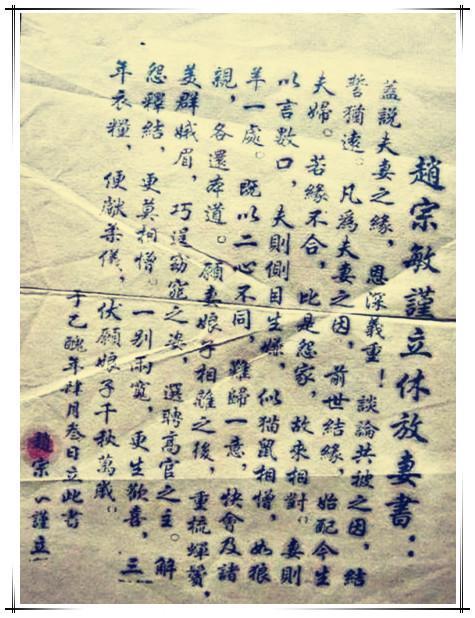 趙宗敏謹立休放妻書：
蓋説夫妻之緣，恩深義重！談論共被之因，結
誓猶遠。凡為夫妻之因，前世結緣，始配今生
夫婦。若緣不合，比是怨家，故來相對。妻則
以言數口，夫則側目生嫌，似猫鼠相憎，如狼
羊一處。既以二心不同，難歸一意，快會及諸
親，各還本道。願妻娘子相離之後，重梳蟬鬢，
美群娥眉，巧逞窈窕之姿，選聘高官之主。解
怨釋結，更莫相憎。一別兩寬，更生歡喜，三
年衣糧，便獻柔儀，伏願娘子千秋萬歲。
于乙醜年肆月叁日立此書
趙宗謹立